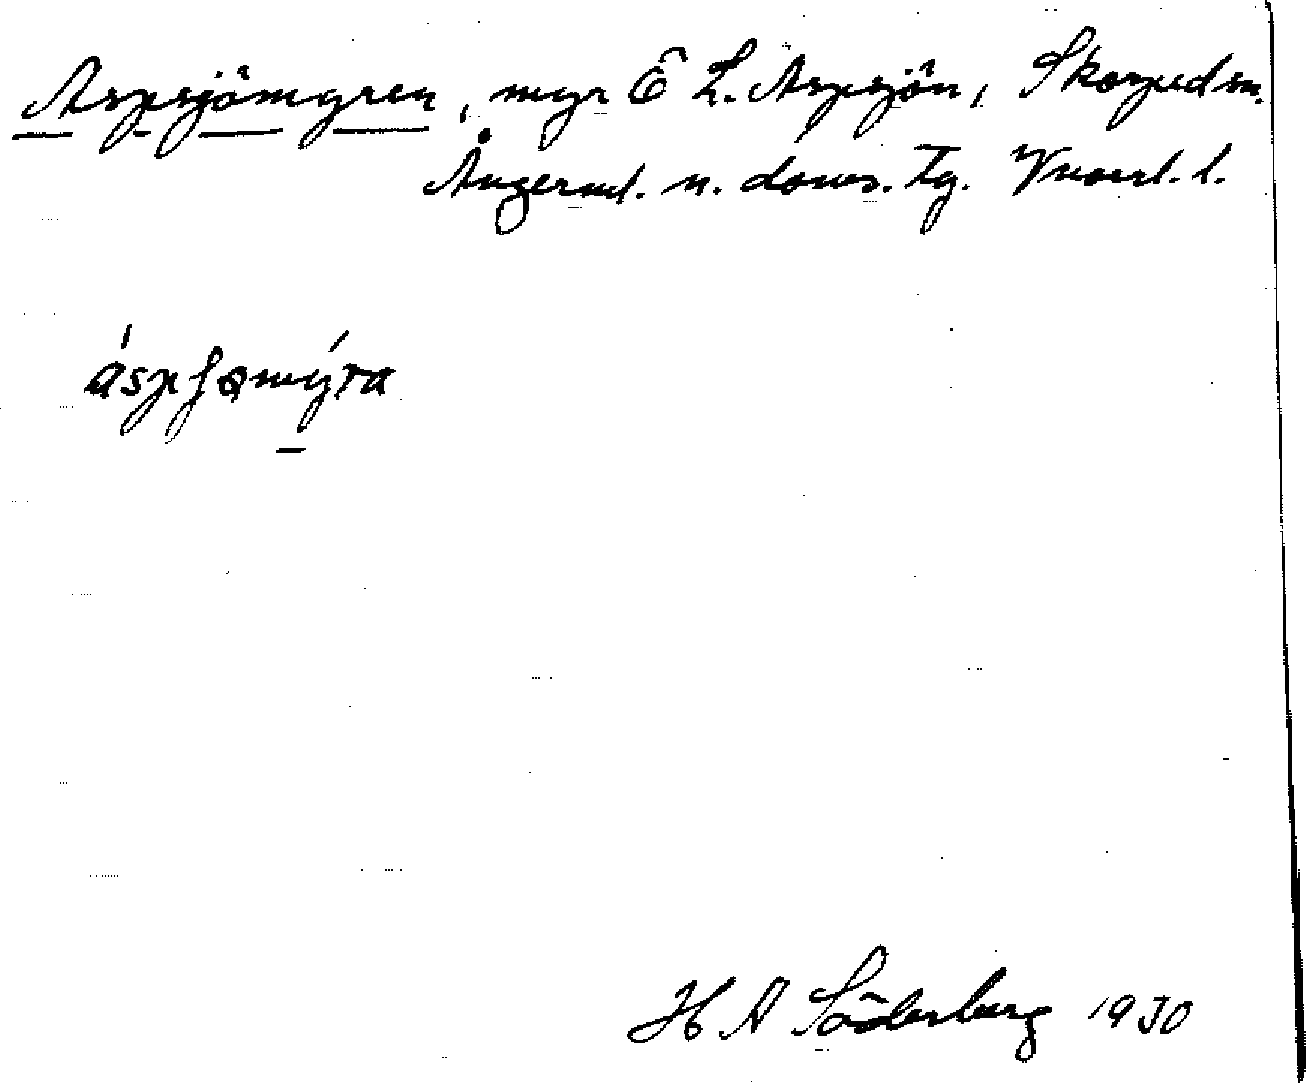 Aspsjömyren, myr Ö L. Aspsjön, Skorped sn.
Ångerml. n. doms. tg. Vnorrl. l.
áspʃømýra
H A Söderberg 1930